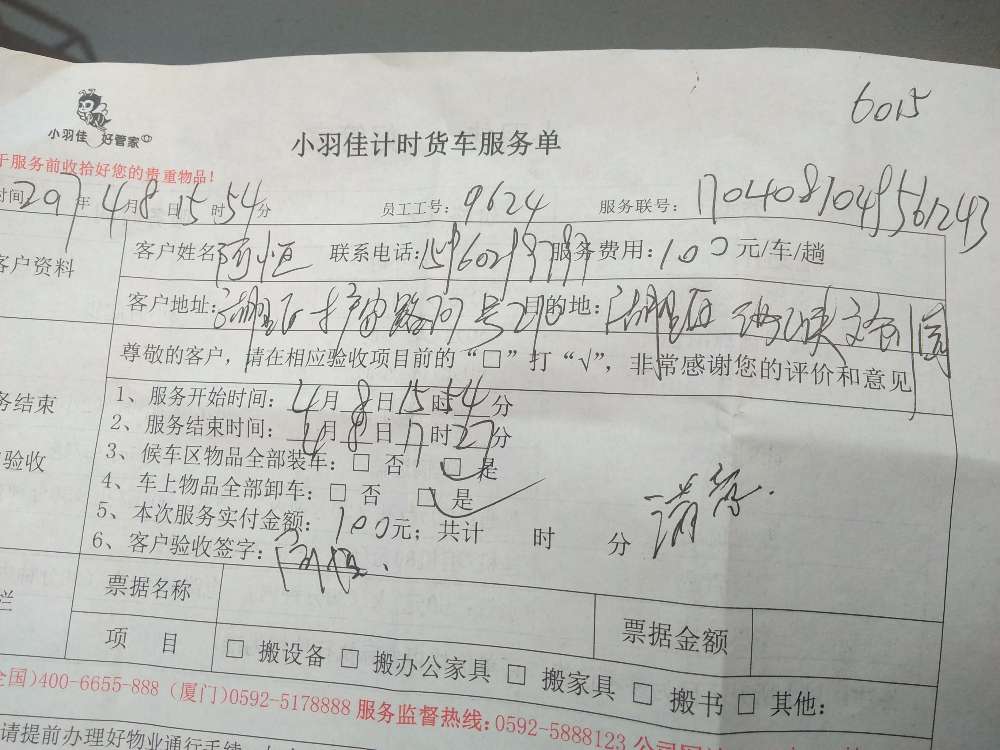 6015
小羽佳 好管家
小羽佳计时货车服务单
于服务前收拾好您的贵重物品!
时间: 年 4月8日15时54分 员工工号: 9624 服务联号:
客户资料
客户姓名 阿恒 联系电话: 服务费用: 100 元/车/趟
客户地址: 湖里区 号 目的地: 湖里区
尊敬的客户, 请在相应验收项目前的“□”打“√”, 非常感谢您的评价和意见
务结束
验收
1、服务开始时间: 4月8日15时54分
2、服务结束时间: 4月8日17时27分
3、候车区物品全部装车: □ 否 □ 是
4、车上物品全部卸车: □ 否 □ 是
5、本次服务实付金额: 100元; 共计 时 分
6、客户验收签字:
满意
栏
票据名称 票据金额
项 目 □ 搬设备 □ 搬办公家具 □ 搬家具 □ 搬书 □ 其他:
全国)400-6655-888 (厦门)0592-5178888 服务监督热线: 0592-5888123
请提前办理好物业通行手续